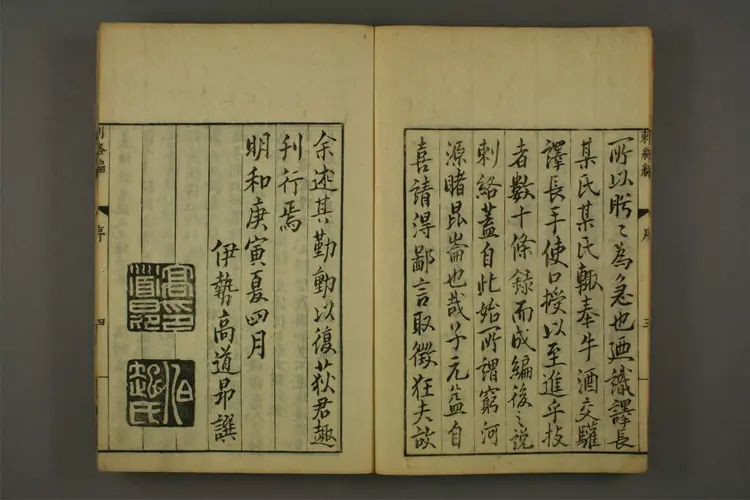 刺絡編
序
三
所以盻〻為急也廼識譯長
某氏某氏輙奉牛酒交驩
譯長手使口授以至進乎技
者數十條錄而成編後之說
刺絡蓋自此始所謂窮河
源睹昆崙也哉子元益自
喜請得鄙言取徵狂夫故
余述其勤動以復荻君趣
刊行焉
明和庚寅夏四月
伊勢高道昂撰
刺絡編
序
四